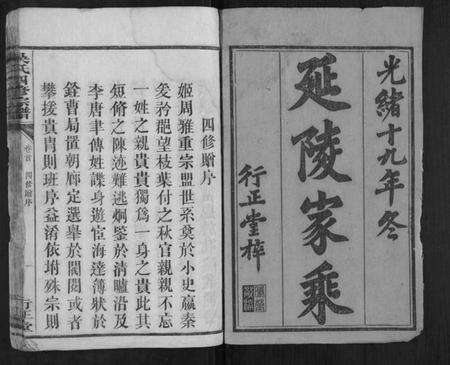 光緒十九年冬
延陵家乘
行正堂梓
吳氏四修宗譜
卷首 四修贈序
行正堂
四修贈序
姬周雅重宗盟世系奠於小史嬴秦
爰矜郡望枝葉付之秋官親親不忘
一姓之親貴貴獨為一身之貴此其
短脩之陳迹難逃烱鑒於清矑沿及
李唐聿傳姓譜身遊宦海達簿狀於
銓曹局置朝廊定選舉於閥閱或者
攀援貴胄則班序益淆依坿殊宗則